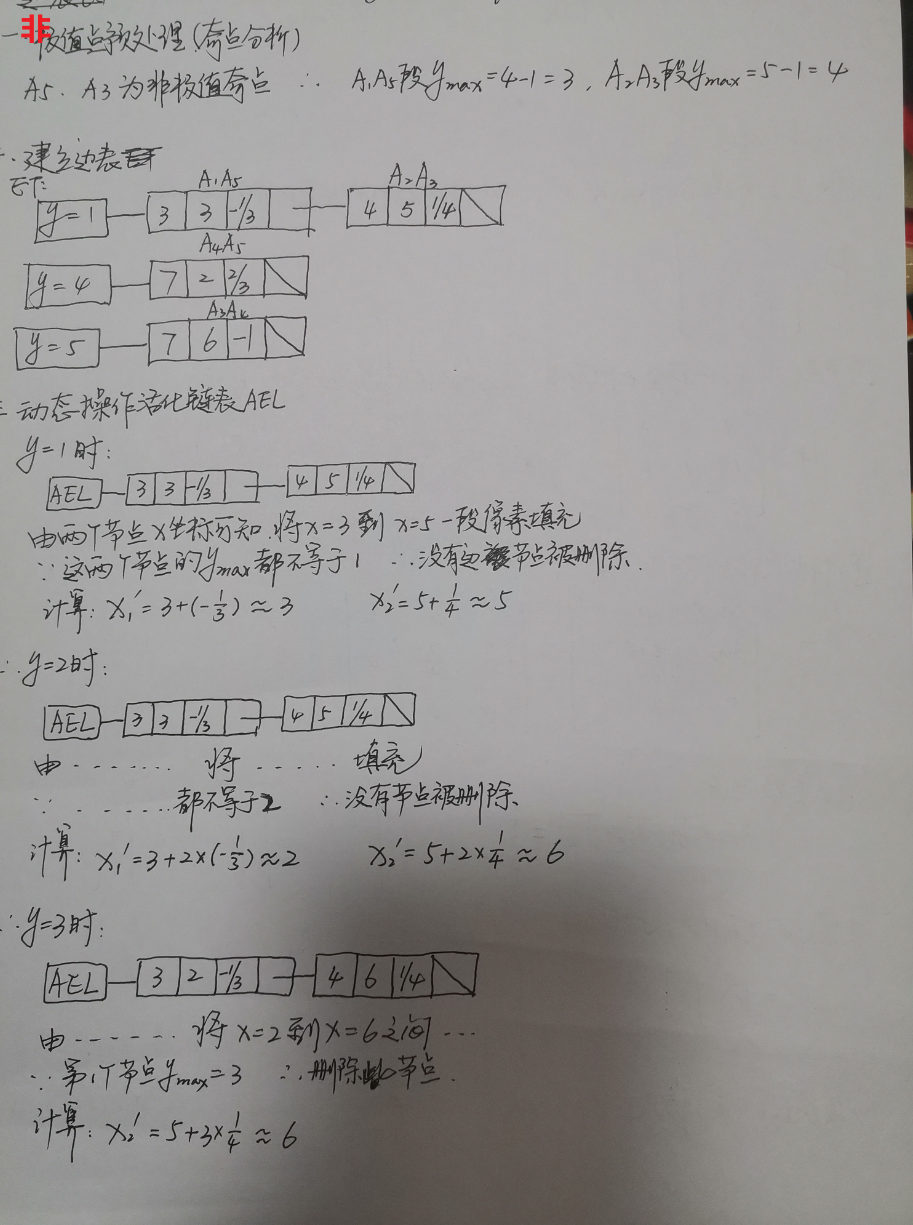 非
一 极值点预处理(奇点分析)
A5、A3为非极值奇点 ∴ A1A5段ymax=4-1=3，A2A3段ymax=5-1=4
建立边表
ET:
A1A5 A2A3
y=1 3 3 -1/3 4 5 1/4
A4A5
y=4 7 2 2/3
A3A4
y=5 7 6 -1
三 动态操作活化链表AEL
y=1时:
AEL 3 3 -1/3 4 5 1/4
由两个节点x坐标可知,将x=3到x=5一段像素填充
∵这两个节点的ymax都不等于1 ∴没有边节点被删除.
计算: x1'=3+(-1/3)≈3 x2'=5+1/4≈5
∴ y=2时:
AEL 3 3 -1/3 4 5 1/4
由……… 将…… 填充
∵……都不等于2 ∴没有节点被删除
计算: x1'=3+2×(-1/3)≈2 x2'=5+2×1/4≈6
∴ y=3时:
AEL 3 2 -1/3 4 6 1/4
由……… 将x=2到x=6之间…
∵第1个节点ymax=3 ∴删除此节点.
计算: x2'=5+3×1/4≈6